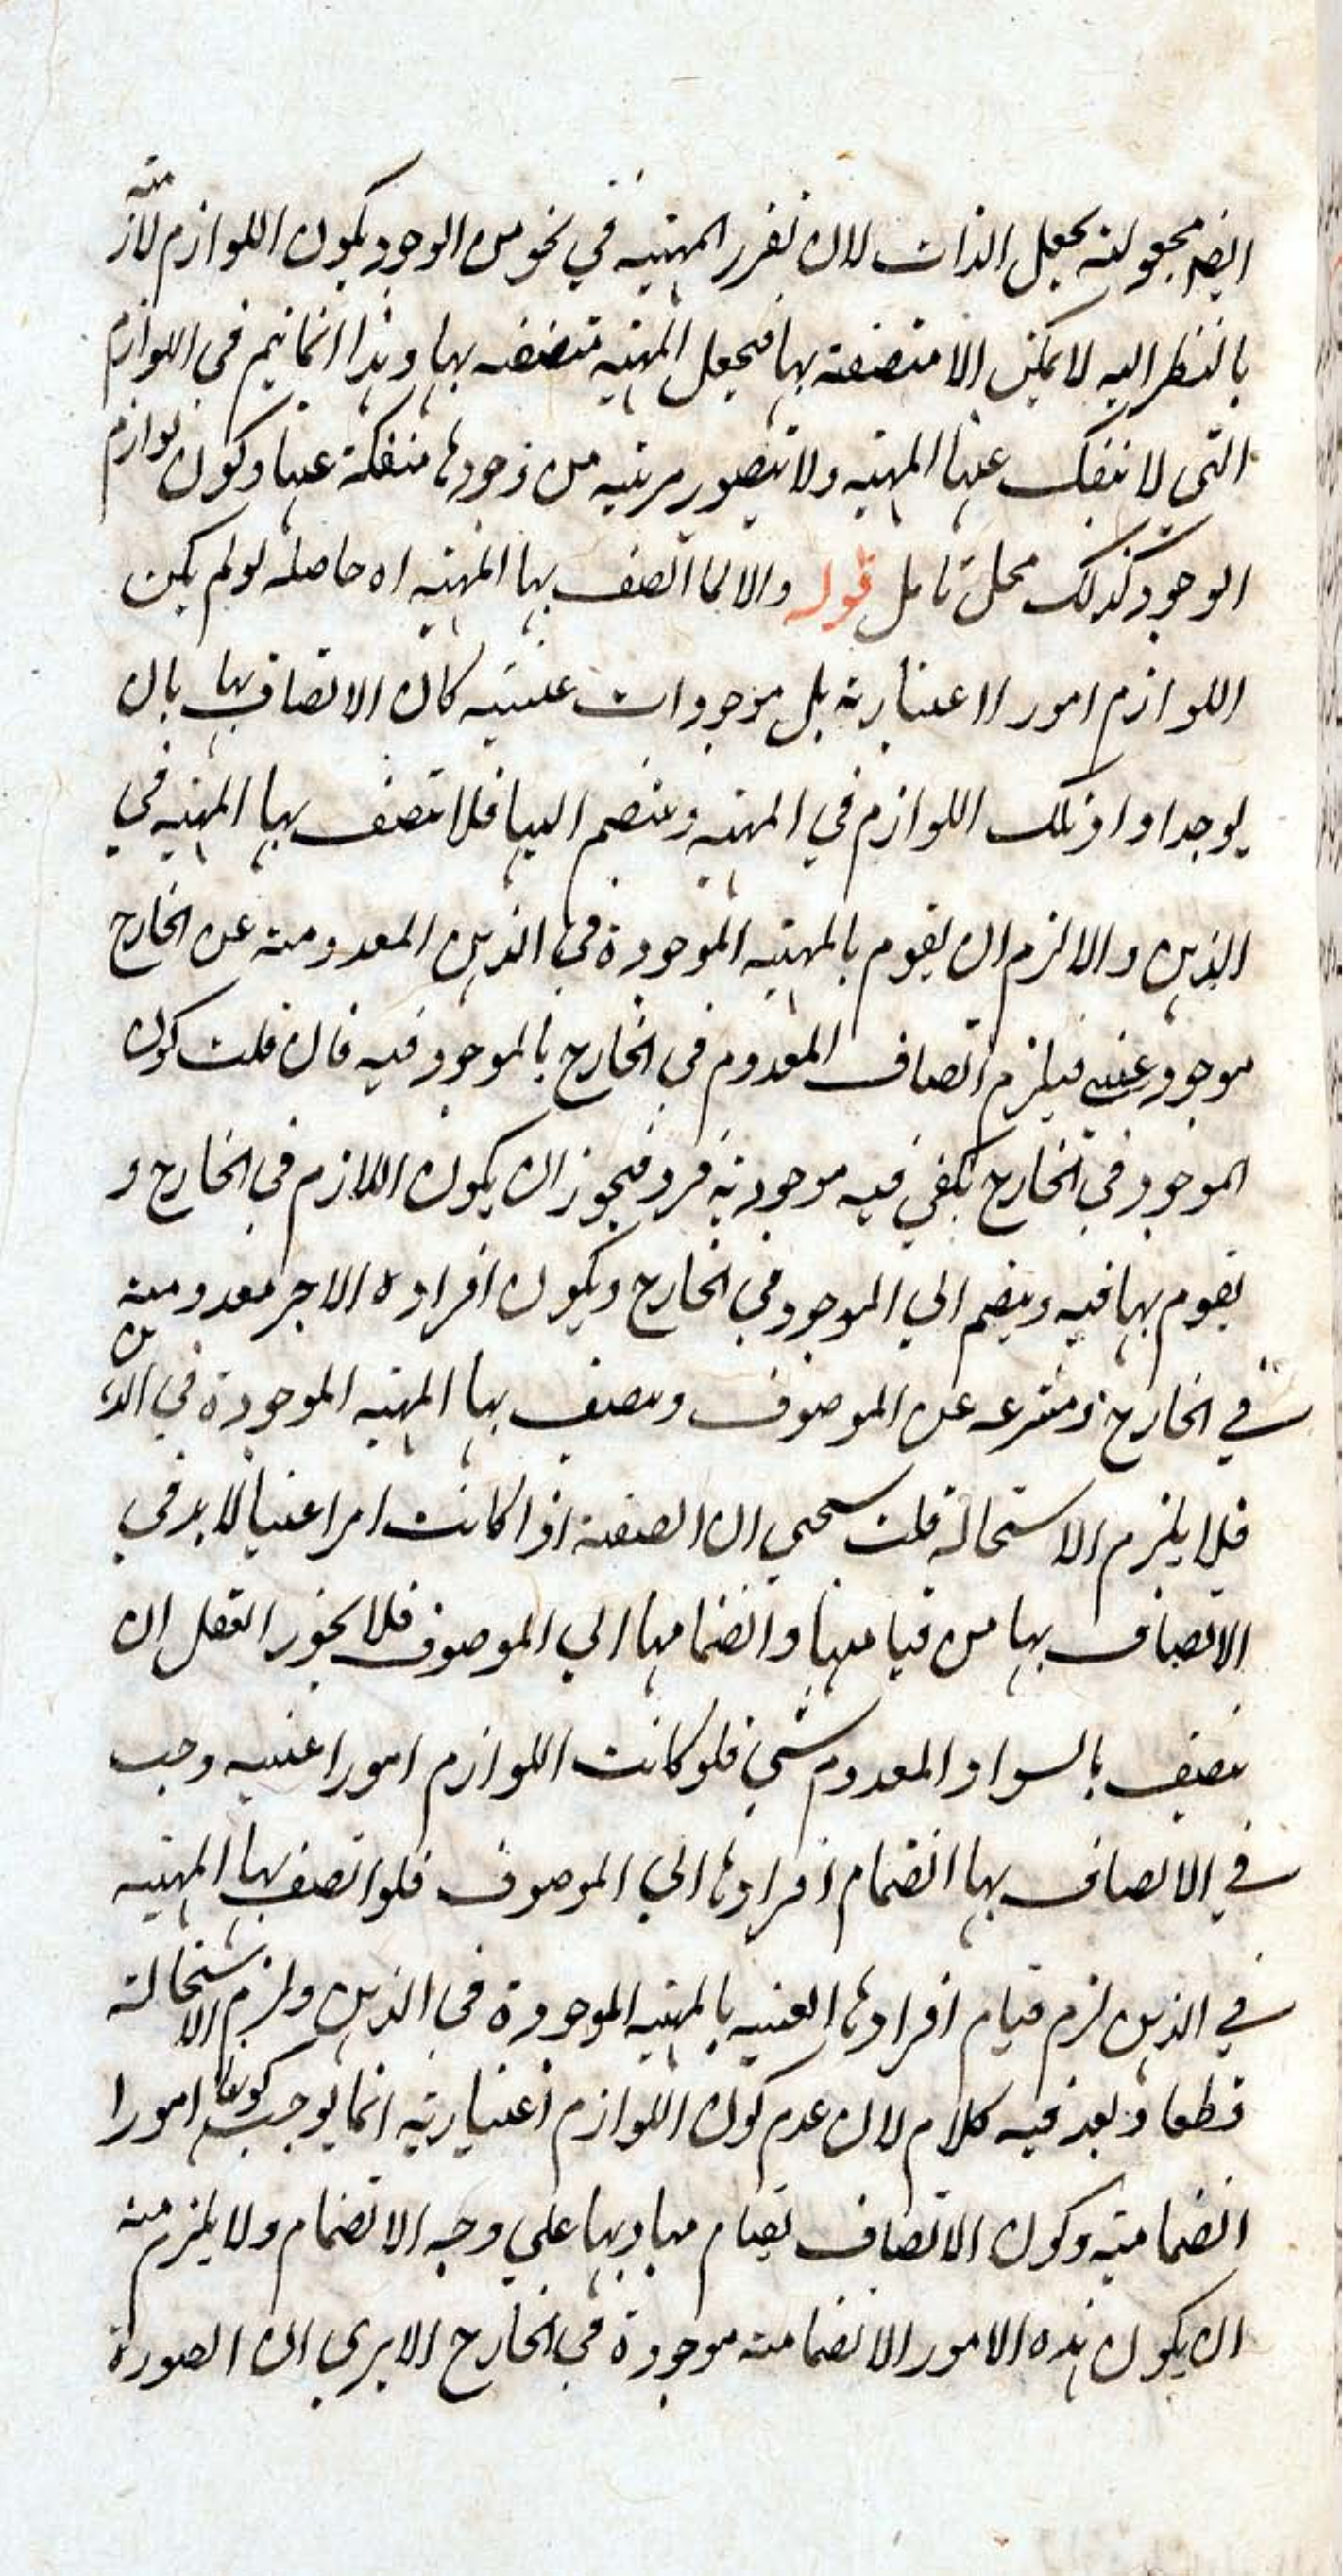 ايضا مجعولة بجعل الذات لان تقرر المهية في نحو من الوجود يكون اللوازم لازمة
بالنظر اليه لا يمكن الا متصفة بها فجعل المهية متصفه بها وهذا انما يتم في اللوازم
التي لا تنفك عنها المهية ولا يتصور مرتبه من وجودها منفكة عنها وكون لوازم
الوجود كذلك محل تامل قوله والا لما اتصف بها المهيه اه حاصله لو لم يكن
اللوازم امورا اعتبارية بل موجودات عينيه كان الاتصاف بها بان
يوجد افراد تلك اللوازم في المهيه وينضم اليها فلا تتصف بها المهيه في
الذهن والا لزم ان يقوم بالمهيه الموجودة في الذهن المعدومة عن الخارج
موجود عيني فيلزم اتصاف المعدوم في الخارج بالموجود فيه فان قلت كون
الموجود في الخارج يكفي فيه موجودية فرد فيجوز ان يكون اللازم في الخارج و
يقوم بها فيه وينضم الي الموجود في الخارج ويكون افراده الاخر معدومة
في الخارج منتزعه عن الموصوف ويتصف بها المهيه الموجودة في الذهن
فلا يلزم الاستحالة قلت سيجي ان الصفة اذا كانت امرا عينيا لا بد في
الاتصاف بها من قيامها وانضمامها الي الموصوف فلا يجوز العقل ان
يتصف بالسواد المعدوم شي فلو كانت اللوازم امورا عينيه وجب
في الاتصاف بها انضمام افرادها الي الموصوف فلو اتصف بها المهيه
في الذهن لزم قيام افرادها العينيه بالمهيه الموجودة في الذهن ولزم الاستحالة
قطعا وبعد فيه كلام لان عدم كون اللوازم اعتبارية انما يوجب كونها امورا
انضمامية وكون الاتصاف بقيام مباديها علي وجه الانضمام ولا يلزم منه
ان يكون هذه الامور الانضمامية موجودة في الخارج الا يري ان الصورة